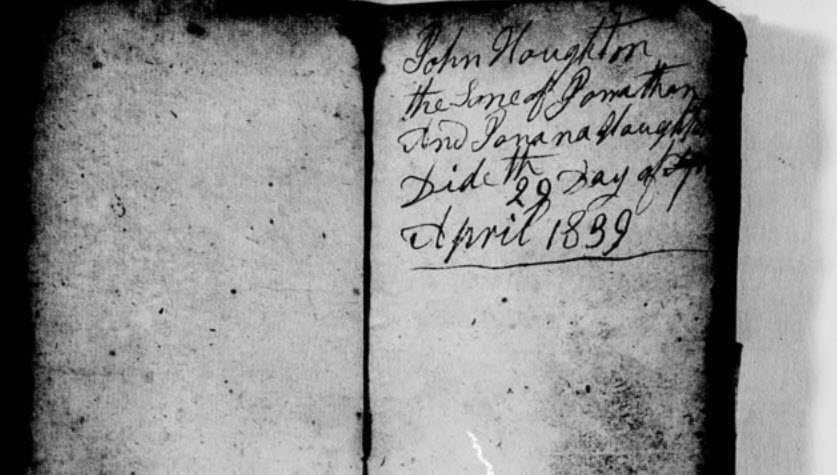 John Houghton
the Sone of Jonathan
And Joanana Houghton
Dide th 29 Day of
April 1839